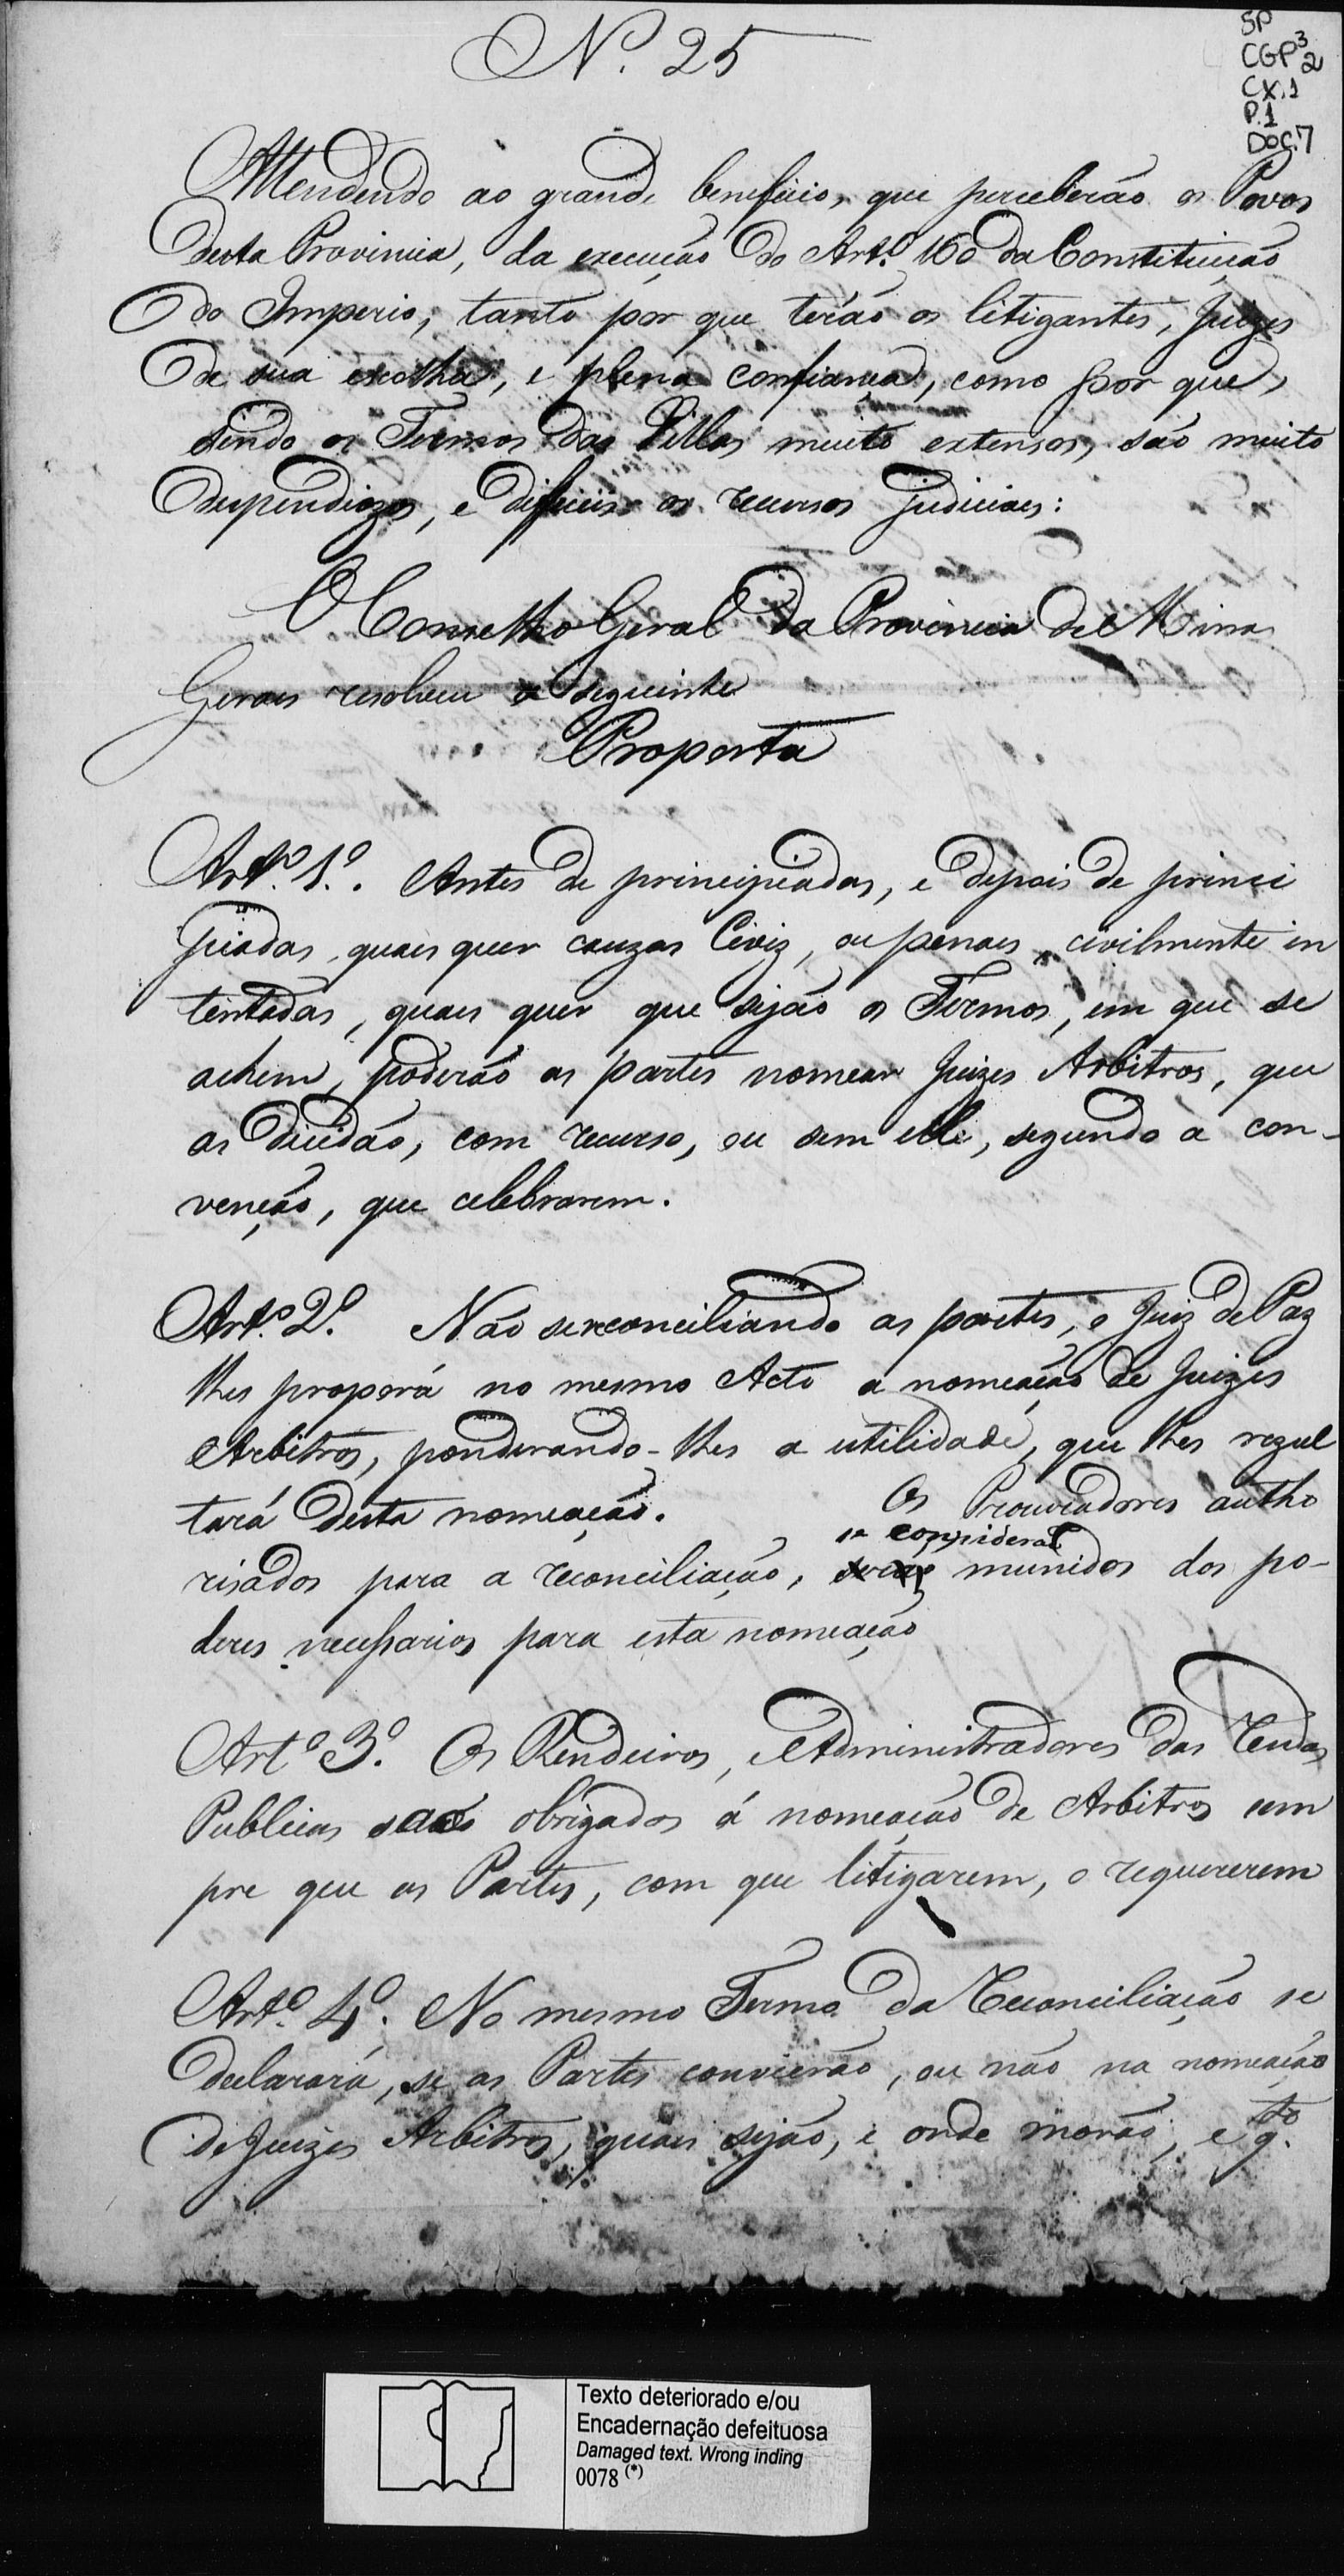 Nº. 25
SP
CGP³2
CX.1
P.1
DOC.7
Attendendo ao grande beneficio, que perceberáõ os Povos
desta Provincia, da execução do Artº. 160 da Constituição
do Imperio; tanto por que teráõ os litigantes, Juizes
de sua escolha, e plena confiança, como por que,
sendo os Termos das Villas muito extensos, são muito
despendiozos, e difficeis os recursos judiciaes:
O Conselho Geral da Provincia de Minas
Geraes resolveu a seguinte
Proposta
Artº. 1º. Antes de principiadas, e depois de princi
piadas quaes quer cauzas Civiz, ou penaes, civilmente in
tentadas, quaes quer que sejão os Termos, em que se
achem, poderáõ as partes nomear Juizes Arbitros, que
as decidão, com recurso, ou sem elle, segundo a con-
venção, que celebrarem.
Artº. 2º. Não se reconciliando as partes, o Juiz de Paz
lhes proporá no mesmo Acto a nomeação de Juizes
Arbitros, ponderando-lhes a utilidade, que lhes rezul
tará desta nomeação. Os Procuradores autho
se considerão
risados para a reconciliação, munidos dos po-
deres necessarios para esta nomeação
Artº 3º. Os Rendeiros, e Administradores das Rendas
Publicas são obrigados á nomeação de Arbitros sem
pre que as Partes, com que litigarem, o requererem
Artº. 4º. No mesmo Termo da Reconciliação se
declarará, se as Partes convierão, ou não na nomeação
de Juizes Arbitros, quaes sejão, e onde morão, e qto.
Texto deteriorado e/ou
Encadernação defeituosa
Damaged text. Wrong inding
0078 (*)